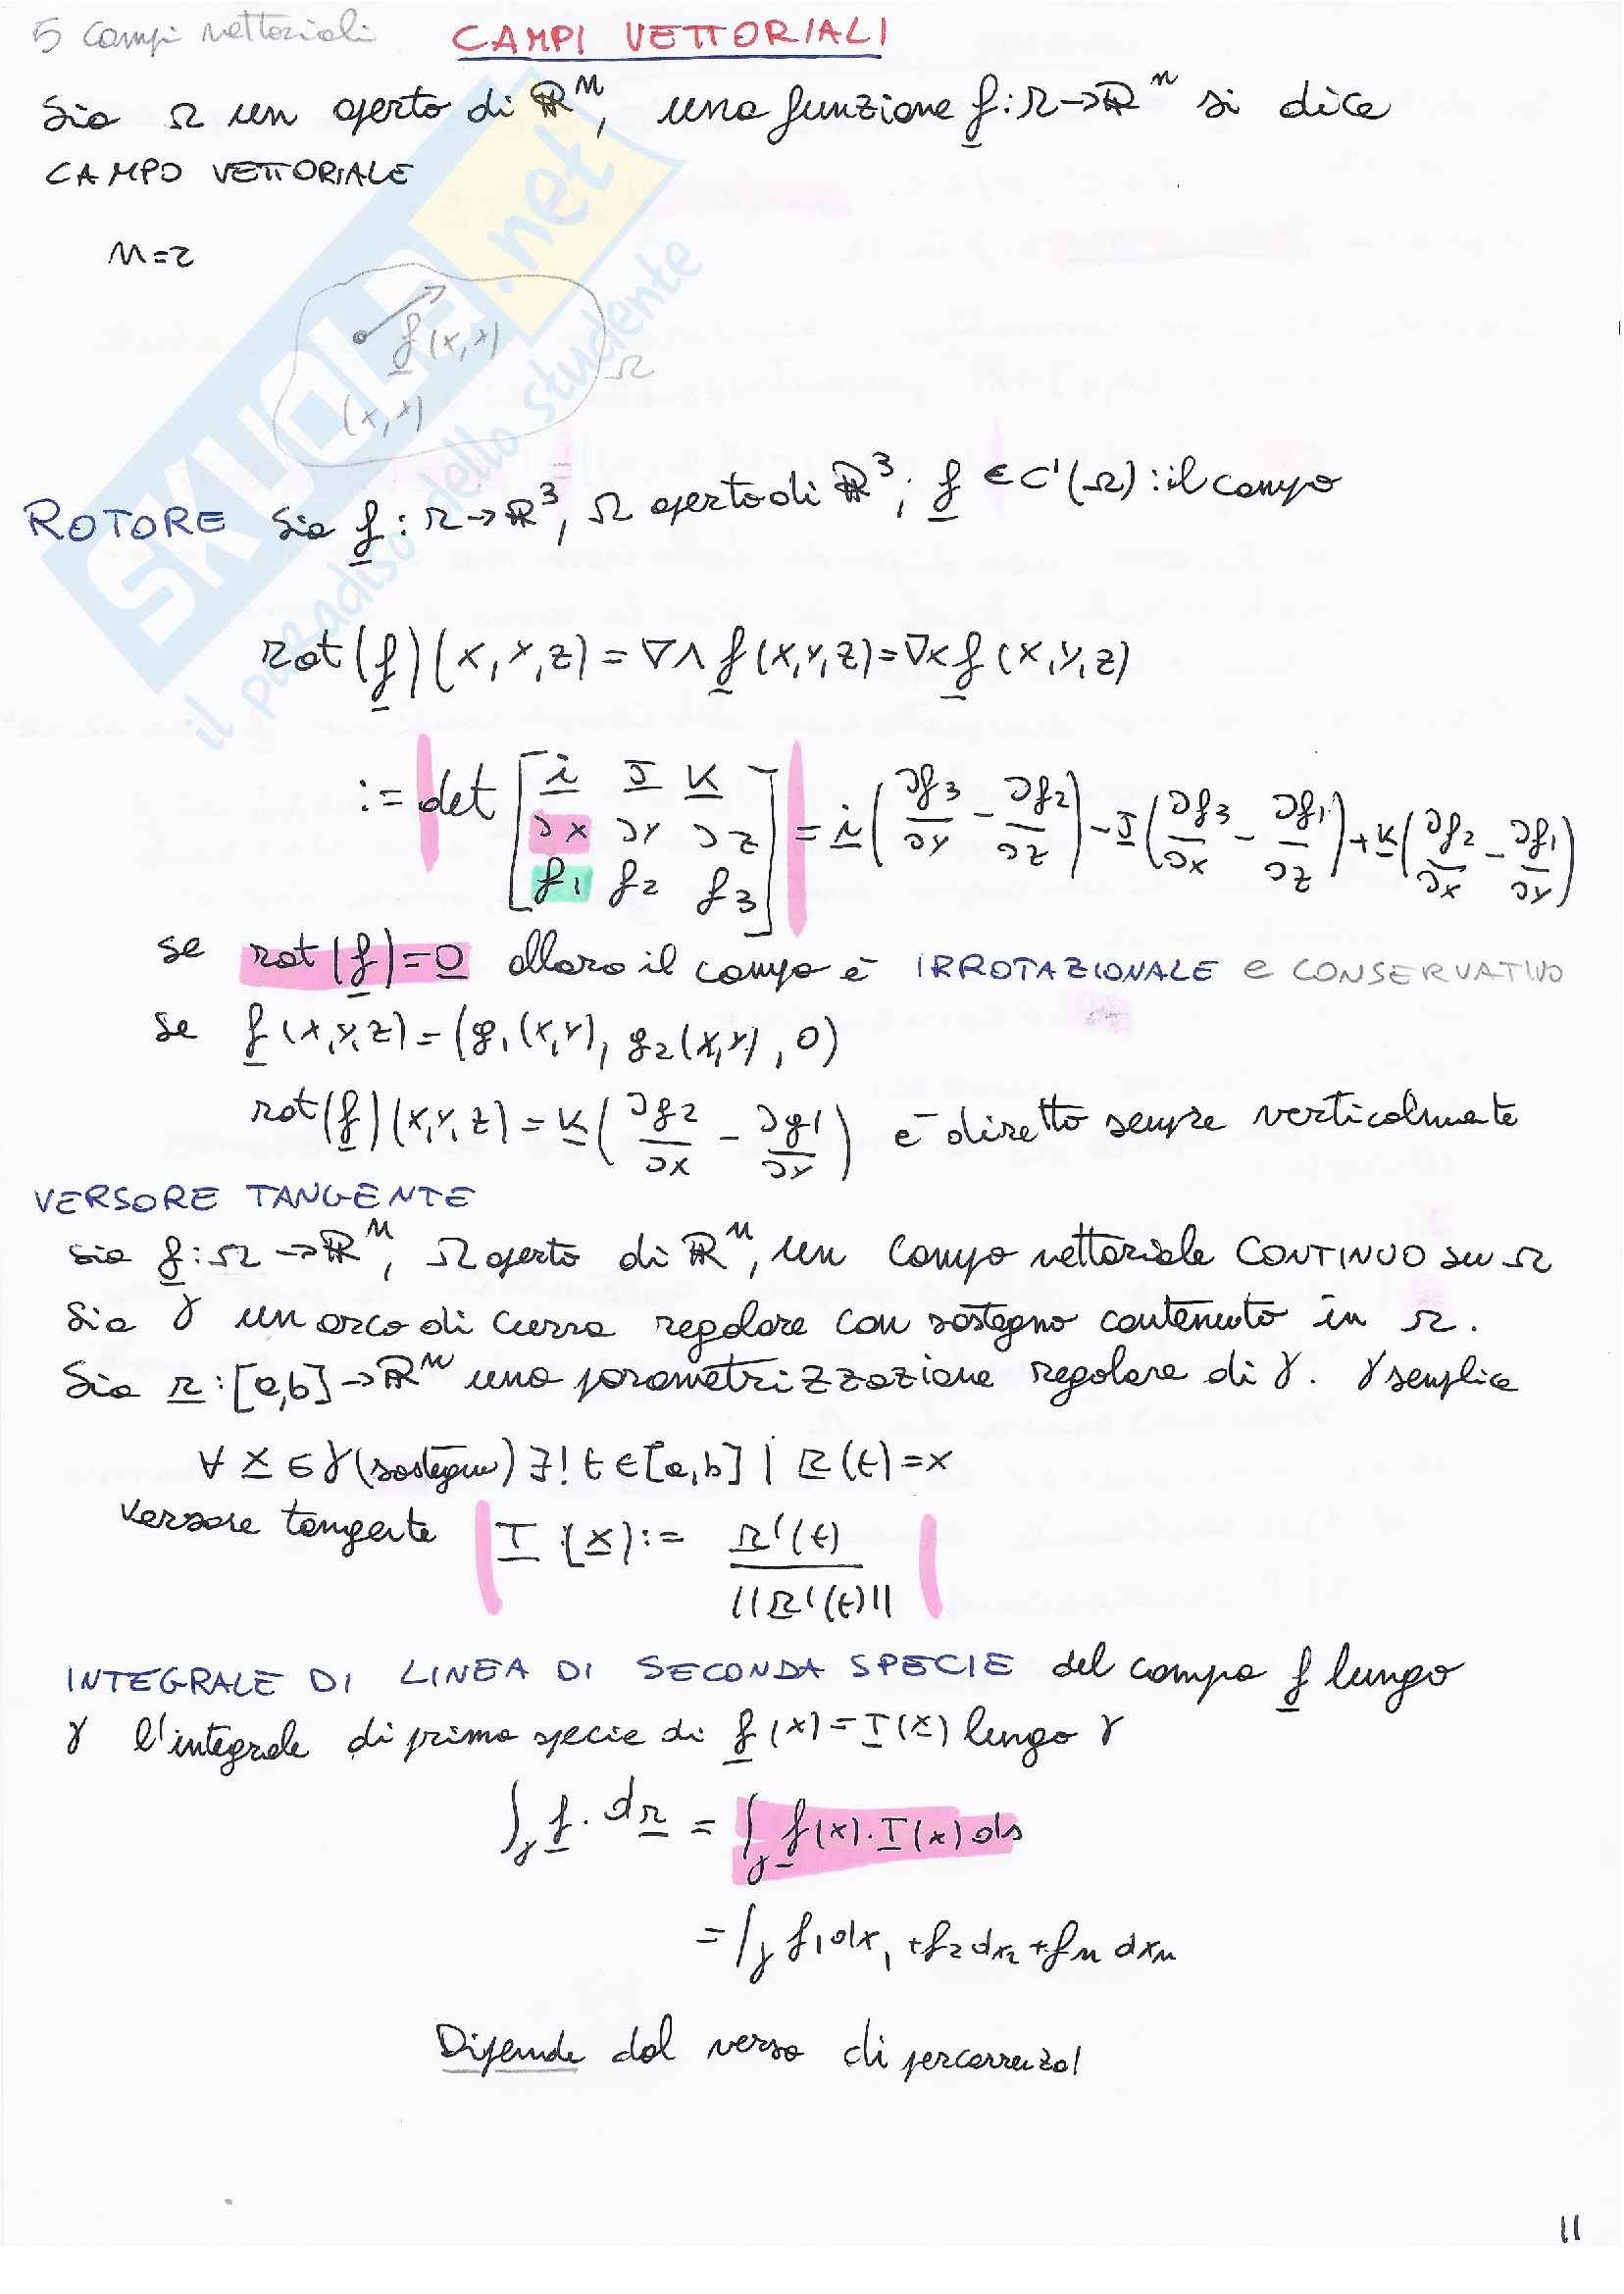 5 campi vettoriali CAMPI VETTORIALI
Sia Ω un aperto di ℝⁿ, una funzione f: Ω→ℝⁿ si dice
CAMPO VETTORIALE
n=2
f(x,y)
Ω
(x,y)
ROTORE Sia f: Ω→ℝ³, Ω aperto di ℝ³; f ∈ C¹(Ω): il campo
rot(f)(x,y,z) = ∇∧f(x,y,z) = ∇×f(x,y,z)
:= det [ i J K = i(∂f3/∂y - ∂f2/∂z) - J(∂f3/∂x - ∂f1/∂z) + K(∂f2/∂x - ∂f1/∂y)
∂x ∂y ∂z
f1 f2 f3 ]
se rot(f)=0 allora il campo è IRROTAZIONALE e CONSERVATIVO
se f(x,y,z)=(g1(x,y), g2(x,y), 0)
rot(f)(x,y,z)=K(∂g2/∂x - ∂g1/∂y) è diretto sempre verticalmente
VERSORE TANGENTE
Sia f: Ω→ℝⁿ, Ω aperto di ℝⁿ, un campo vettoriale CONTINUO su Ω
Sia γ un arco di curva regolare con sostegno contenuto in Ω.
Sia r: [a,b]→ℝⁿ una parametrizzazione regolare di γ. γ semplice
∀ x ∈ γ (sostegno) ∃! t ∈ [a,b] | r(t)=x
Versore tangente T(x) := r'(t) / ||r'(t)||
INTEGRALE DI LINEA DI SECONDA SPECIE del campo f lungo
γ l'integrale di prima specie di f(x) = T(x) lungo γ
∫γ f · dr = ∫γ f(x) · T(x) ds
= ∫γ f1 dx1 + f2 dx2 + fn dxn
Dipende dal verso di percorrenza!
11
SKUOLA.net
il paradiso dello studente